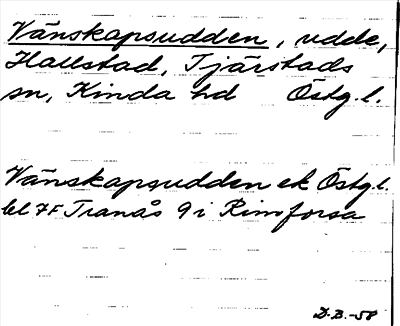 Vänskapsudden, udde,
Hallstad, Tjärstads
sn, Kinda hd Östg.l.
Vänskapsudden ek Östg.l.
bl 7F Tranås 9 i Rimforsa
D.B.-58